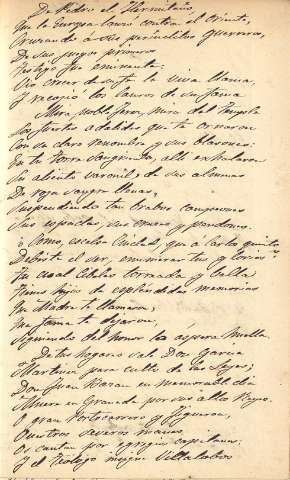 De Pedro el Hermitaño
Que la Europa lanzó contra el Oriente,
Cruzando á sus guerreros,
De sus juegos primeros
Testigo fue
Vio crecer de su fe la viva llama
Y recojió los lauros de su fama
Mira noble Jerez, mira del Angelo
Los fuertes adalides que te ornaron
Con su claro renombre y sus blasones:
En tu torre sangrienta, allí exhalaron
Su aliento varonil, de sus
De roja sangre llenas,
Suspendiendo tan bravos campeones
Sus espadas, sus cruces y pendones.
ó Cómo, escelsa Ciudad, que á Carlos quinto
Debiste el ser, enumerar tus glorias
Tu cual Cibeles torreada y bella
Hijos de espléndidas memorias
Su Madre te llamaron;
Su fama te dejaron,
Siguiendo del honor la áspera huella.
De tus hogares sale Don Garcia
Martinez para culto de las leyes;
Don Juan Bazan en memorable dia
Muere en Granada por sus altos Reyes.
O gran Portocarrero y Figueroa,
Vuestros severos manes
Os cantan por egregios capitanes;
Y el Teólogo insigne Villalobos